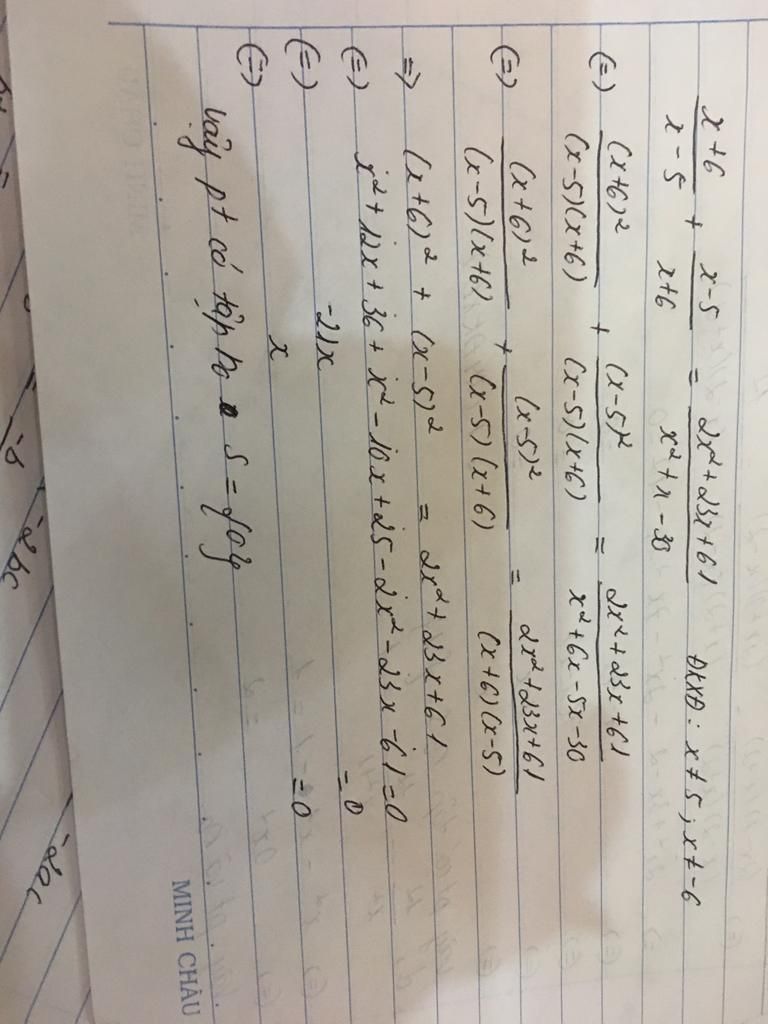 x+6/x-5 + x-5/x+6 = 2x²+23x+61/x²+x-30 ĐKXĐ: x≠5; x≠-6
(=) (x+6)²/(x-5)(x+6) + (x-5)²/(x-5)(x+6) = 2x²+23x+61/x²+6x-5x-30
(=) (x+6)²/(x-5)(x+6) + (x-5)²/(x-5)(x+6) = 2x²+23x+61/(x+6)(x-5)
=) (x+6)² + (x-5)² = 2x²+23x+61
(=) x²+12x+36+x²-10x+25-2x²-23x-61=0
(=) -21x = 0
(=) x = 0
Vậy pt có tập no S={0}
MINH CHÂU
-2bc
-2ac